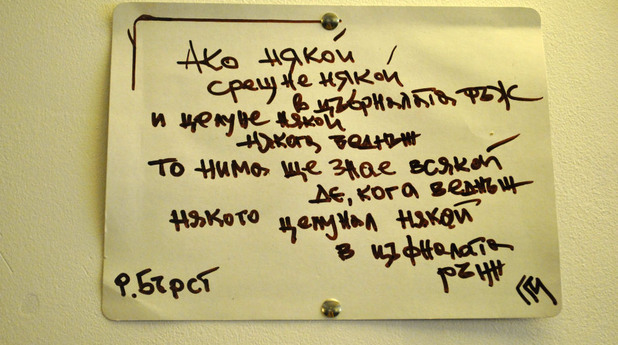 Ако някой
срещне някой
в цъфналата ръж
и целуне някой
някога веднъж
то нима ще знае всякой
де, кога веднъж
някого целунал някой
в цъфналата
ръж
Р. Бърст